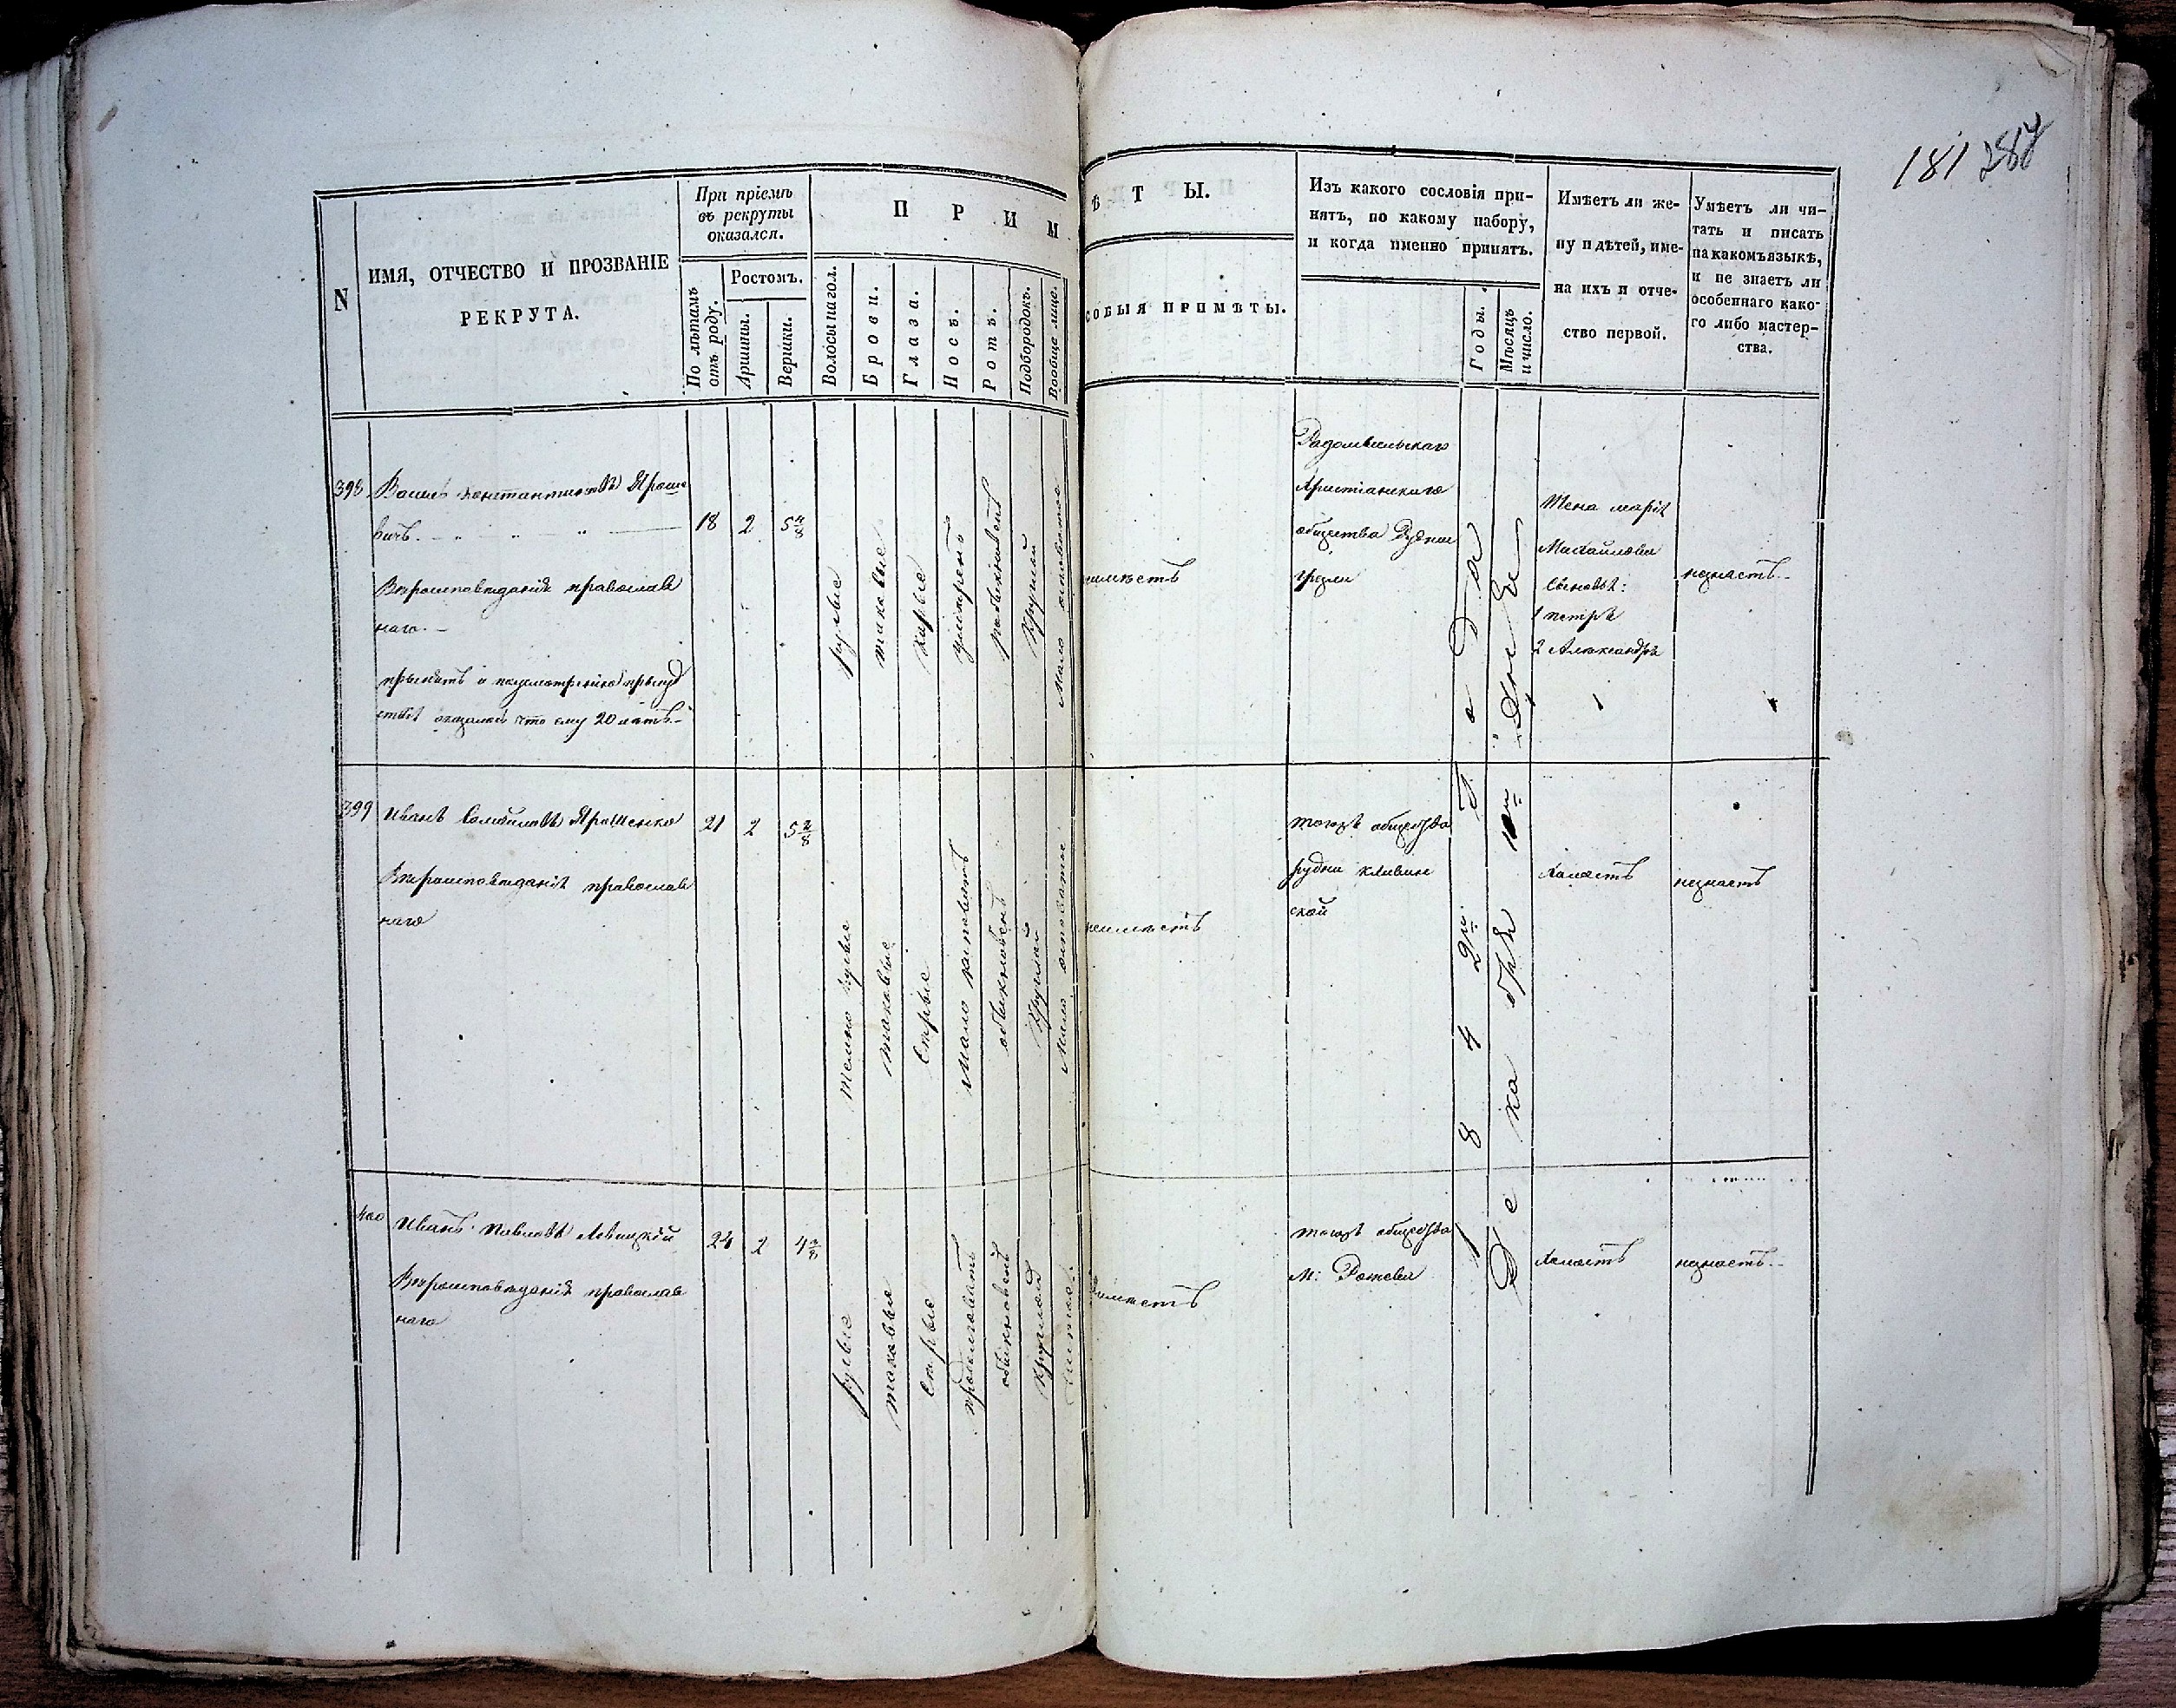 181 287
N
ИМЯ, ОТЧЕСТВО И ПРОЗВАНІЕ
РЕКРУТА.
При пріемѣ
въ рекруты
оказался.
По лѣтамъ
отъ роду.
Ростомъ.
Аршины.
Вершки.
П Р И М
Волосы на гол.
Брови.
Глаза.
Носъ.
Ротъ.
Подбородокъ.
Вообще лице.
Ѣ Т Ы.
СОБЫЯ ПРИМѢТЫ.
Изъ какого сословія при-
нятъ, по какому набору,
и когда именно принятъ.
Годы.
Мѣсяцъ
и число.
Имѣетъ ли же-
ну и дѣтей, име-
на ихъ и отче-
ство первой.
Умѣетъ ли чи-
тать и писать
на какомъ языкѣ,
и не знаетъ ли
особеннаго како-
го либо мастер-
ства.
398
Константиновъ Яроше
вичъ.
Вѣроисповѣданія православ
наго.
что ему 20 лѣтъ
18
2
5 4/8
русые
таковые
карые
умѣренъ
обыкновенъ
круглой
Мало
имѣетъ
Радомысльскаго
Христіанскаго
общества Рудни
Жена Марія
Михайлова
Сыновья:
1 Петръ
2 Александръ
незнаетъ
399
Иванъ Самойловъ Ярошенко
Вѣроисповѣданія православ
наго
21
2
5 2/8
Темно русые
таковые
Сѣрые
Мало
обыкновенъ
Круглой
Мало
неимѣетъ
тогожъ общества
рудни
ской
холостъ
незнаетъ
400
Иванъ Павловъ Левицкій
Вѣроисповѣданія православ
наго
24
2
4 3/8
русые
таковые
Сѣрые
продолговатъ
обыкновенъ
Круглой
Чистое
имѣетъ
тогожъ общества
М:
холостъ
незнаетъ
1 8 4 2 го Г о д а
Де ка бря 10 го дня